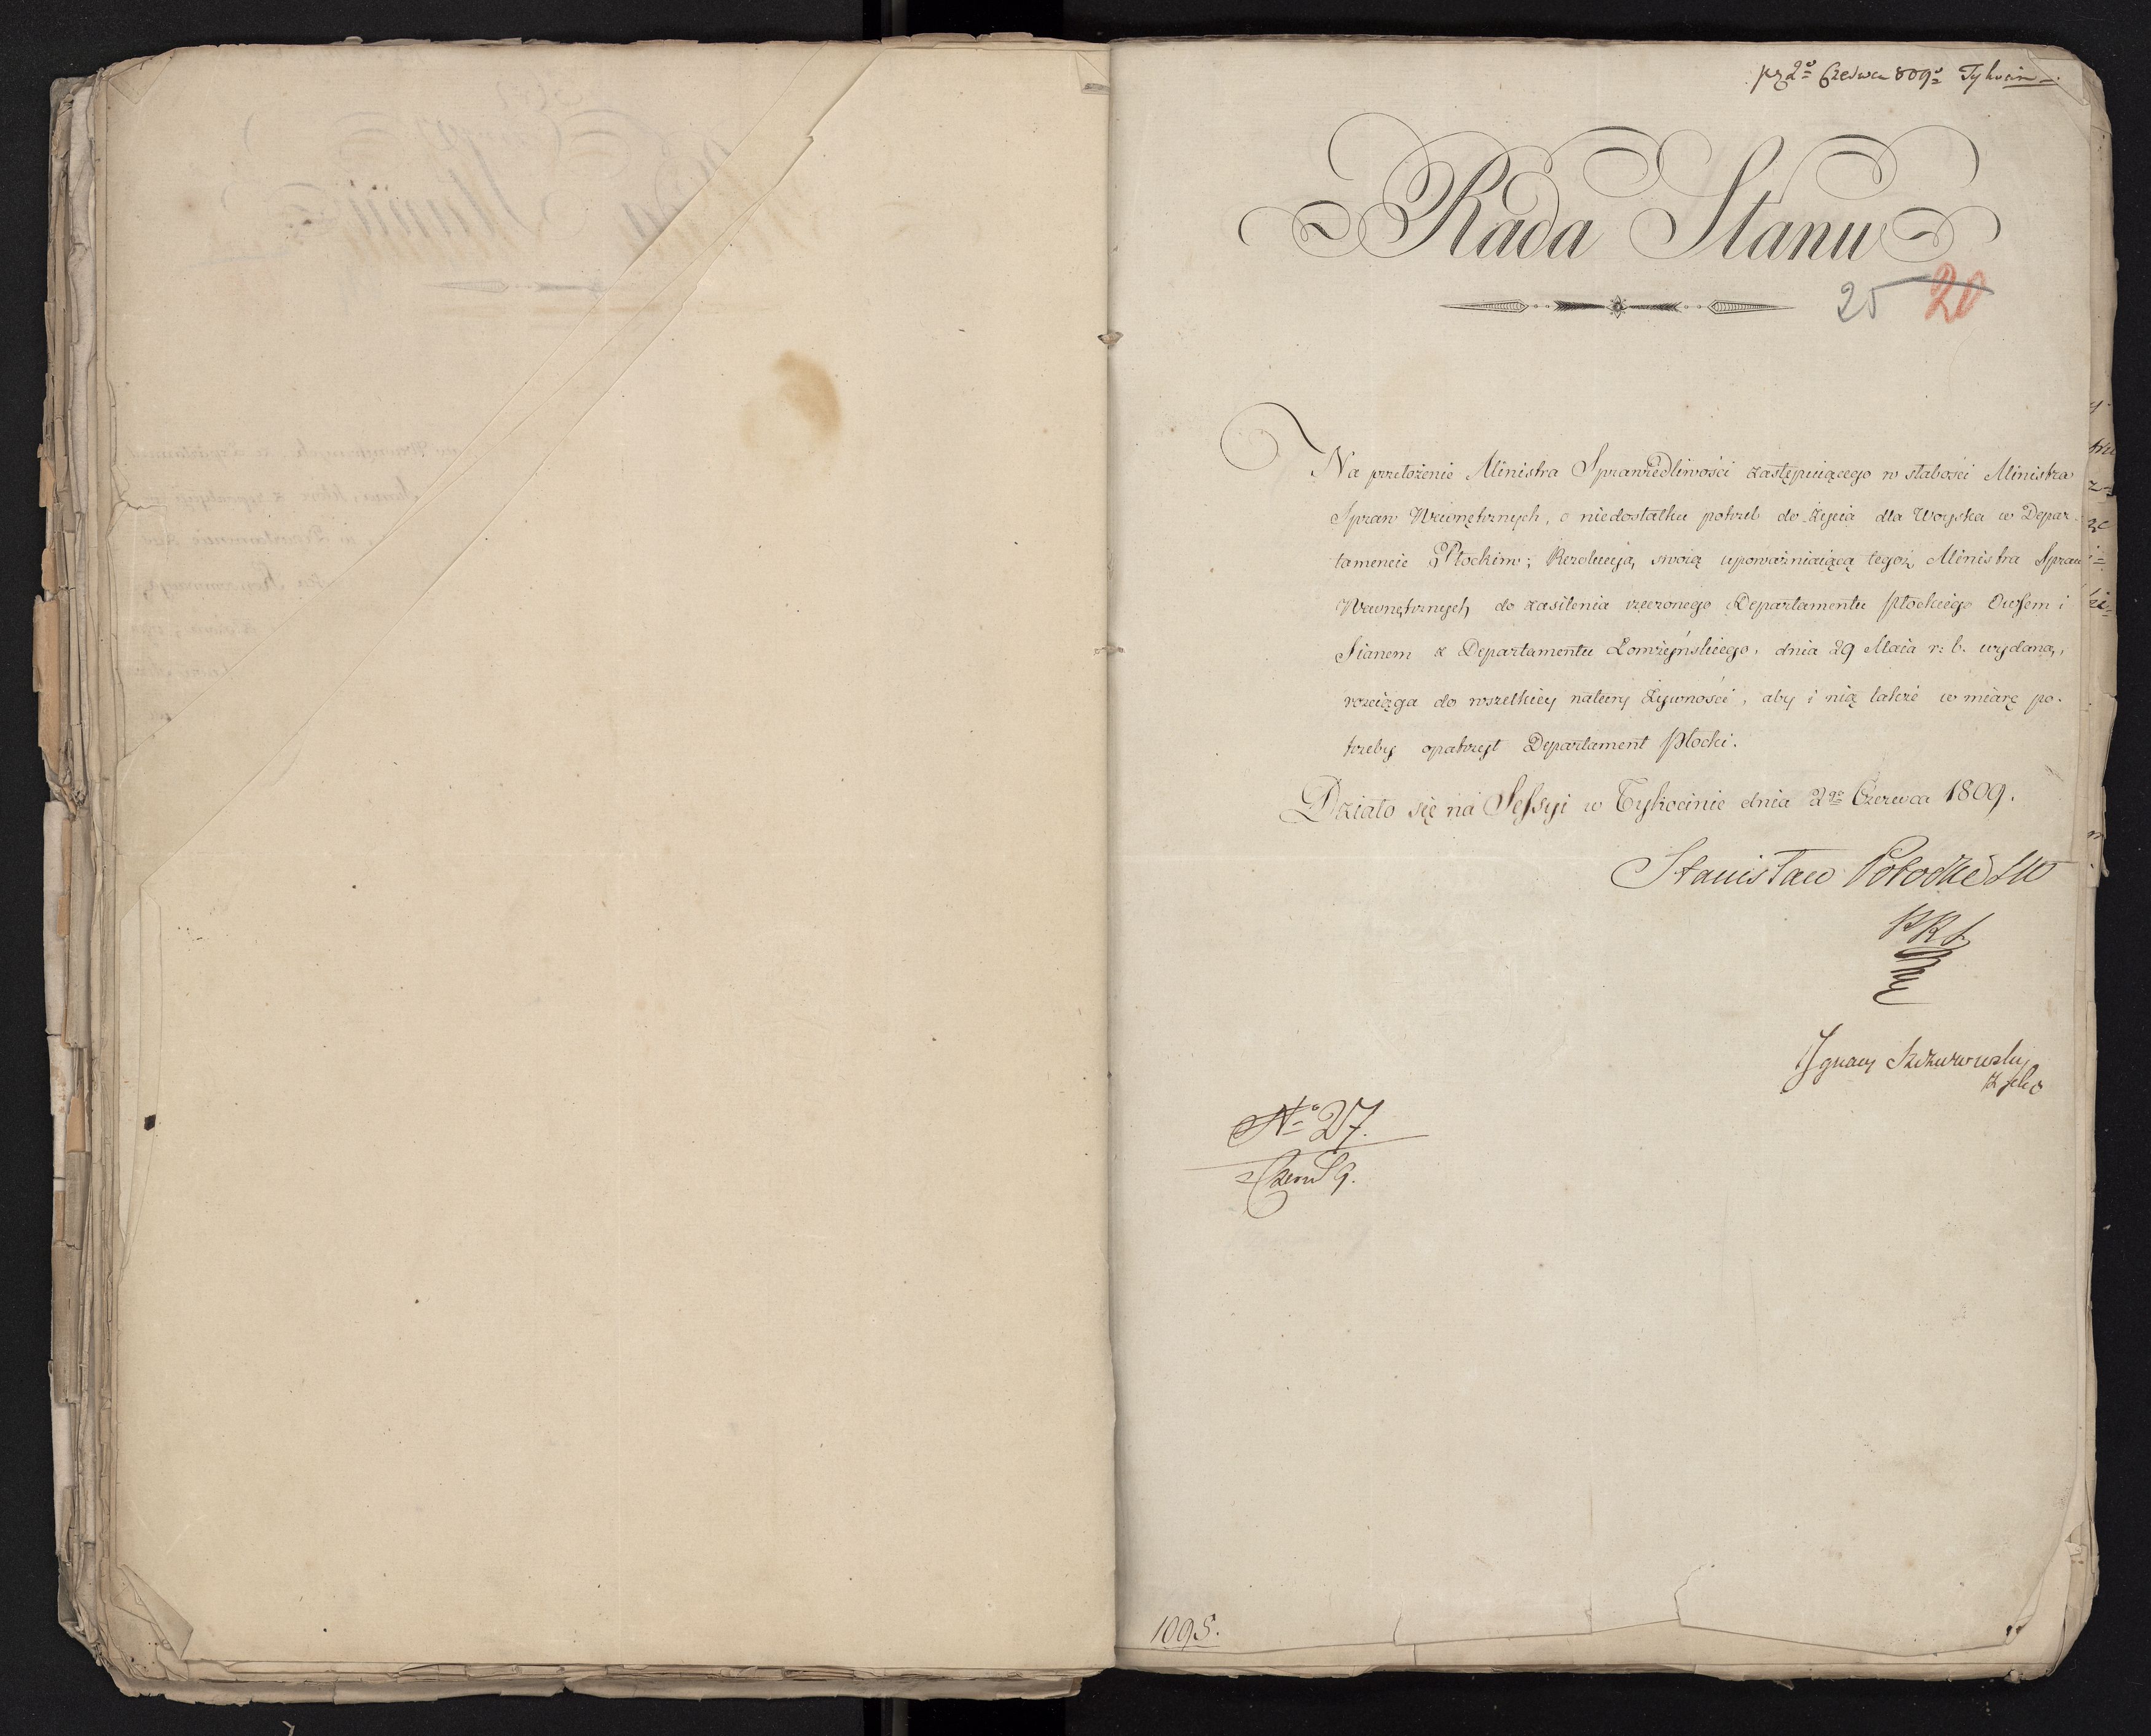 prz 2º Czerwca 809º Tykocin
Rada Stanu
25 20
Na przełożenie Ministra Sprawiedliwości zastępuiącego w słabości Ministra
Spraw Wewnętrznych, o niedostatku potrzeb do życia dla Woyska w Depar-
tamencie Płockim; Rezolucyą swoią upoważniaiącą tegoż Ministra Spraw
Wewnętrznych do zasilenia rzeczonego Departamentu Płockiego Owsem i
Sianem z Departamentu Łomżyńskiego, dnia 29 Maia r: b. wydaną,
rozciąga do wszelkiey natury żywności, aby i nią także w miarę po-
trzeby opatrzył Departament Płocki.
Działo się na Sessyi w Tykocinie dnia 2go Czerwca 1809.
Stanisław Potocki
Ignacy
Nº 27.
1095.